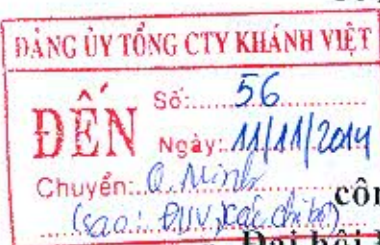 ĐẢNG ỦY TỔNG CTY KHÁNH VIỆT
ĐẾN
Số:.....56.....
Ngày: 11/11/2014
Chuyển: Q. Minh
côn
(sao: ĐUV, các chi bộ)
Đại hội